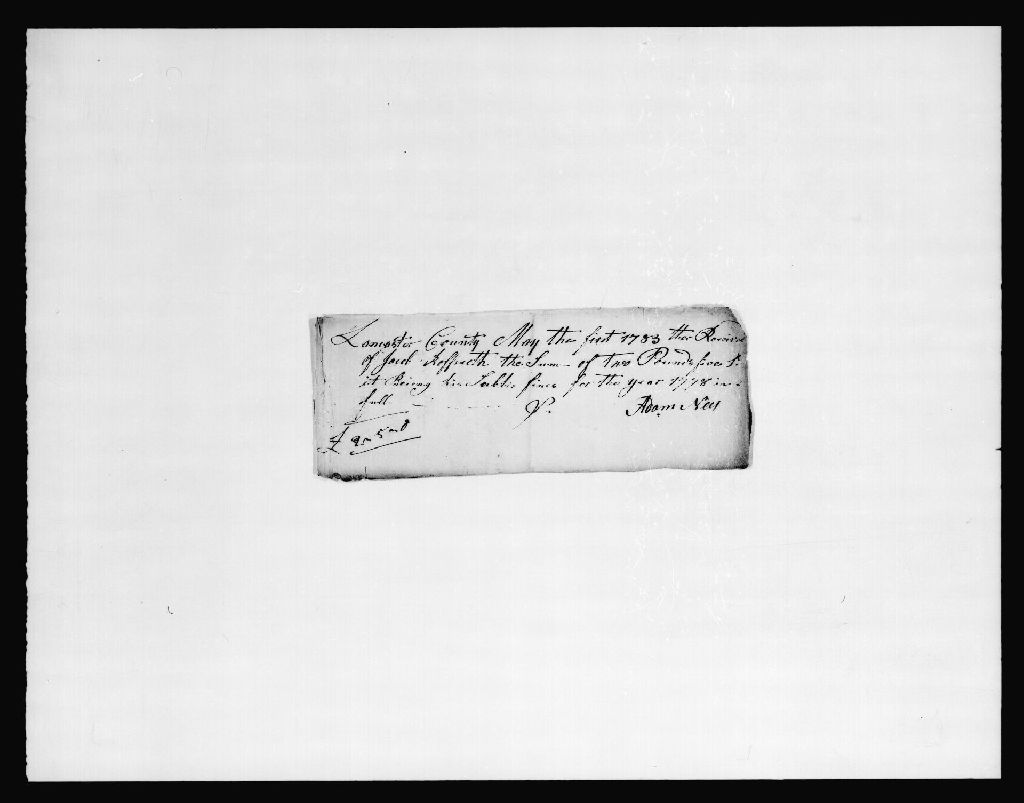 Lancaster County May the first 1783 then Receivd
of Jacob the Sum of two Pounds five S.
it Being his fines for the year 1778 in
full Pr. Adam Nees
£ 2 5 0